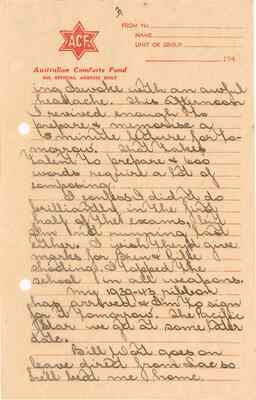 3
FROM No.
NAME
UNIT OR GROUP
194
A.C.F.
Australian Comforts Fund
FOR OFFICIAL SERVICE ONLY
ing I awoke with an awful
headache. This afternoon
I revived enough to
prepare & memorise a
minute lecture for to-
morrow. That takes
talent to prepare & 600
words require a lot of
composing.
I confess I didn't do
brilliantly in the first
half of the exams, but
I'm not running last
either. I wish they'd give
marks for Bren & Rifle
shooting. I topped the
school in all weapons.
My 1939-43 ribbon
has arrived & I'm to sign
for it tomorrow. The Pacific
Star we get at some later
date.
Bill goes on
leave direct from Lae so
he'll beat me home.